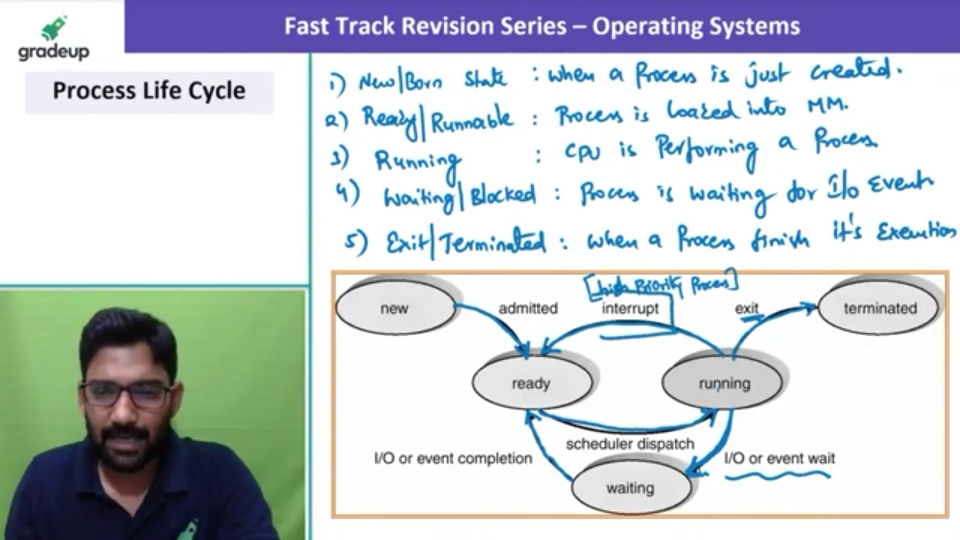 gradeup
Fast Track Revision Series – Operating Systems
Process Life Cycle
1) New/Born State : when a Process is just created.
2) Ready/Runnable : Process is loaded into MM.
3) Running : CPU is Performing a Process.
4) Waiting/Blocked : Process is waiting for I/o Event
5) Exit/Terminated : when a Process finish it's Execution
[high Priority Process]
new
admitted
interrupt
exit
terminated
ready
running
scheduler dispatch
I/O or event completion
I/O or event wait
waiting